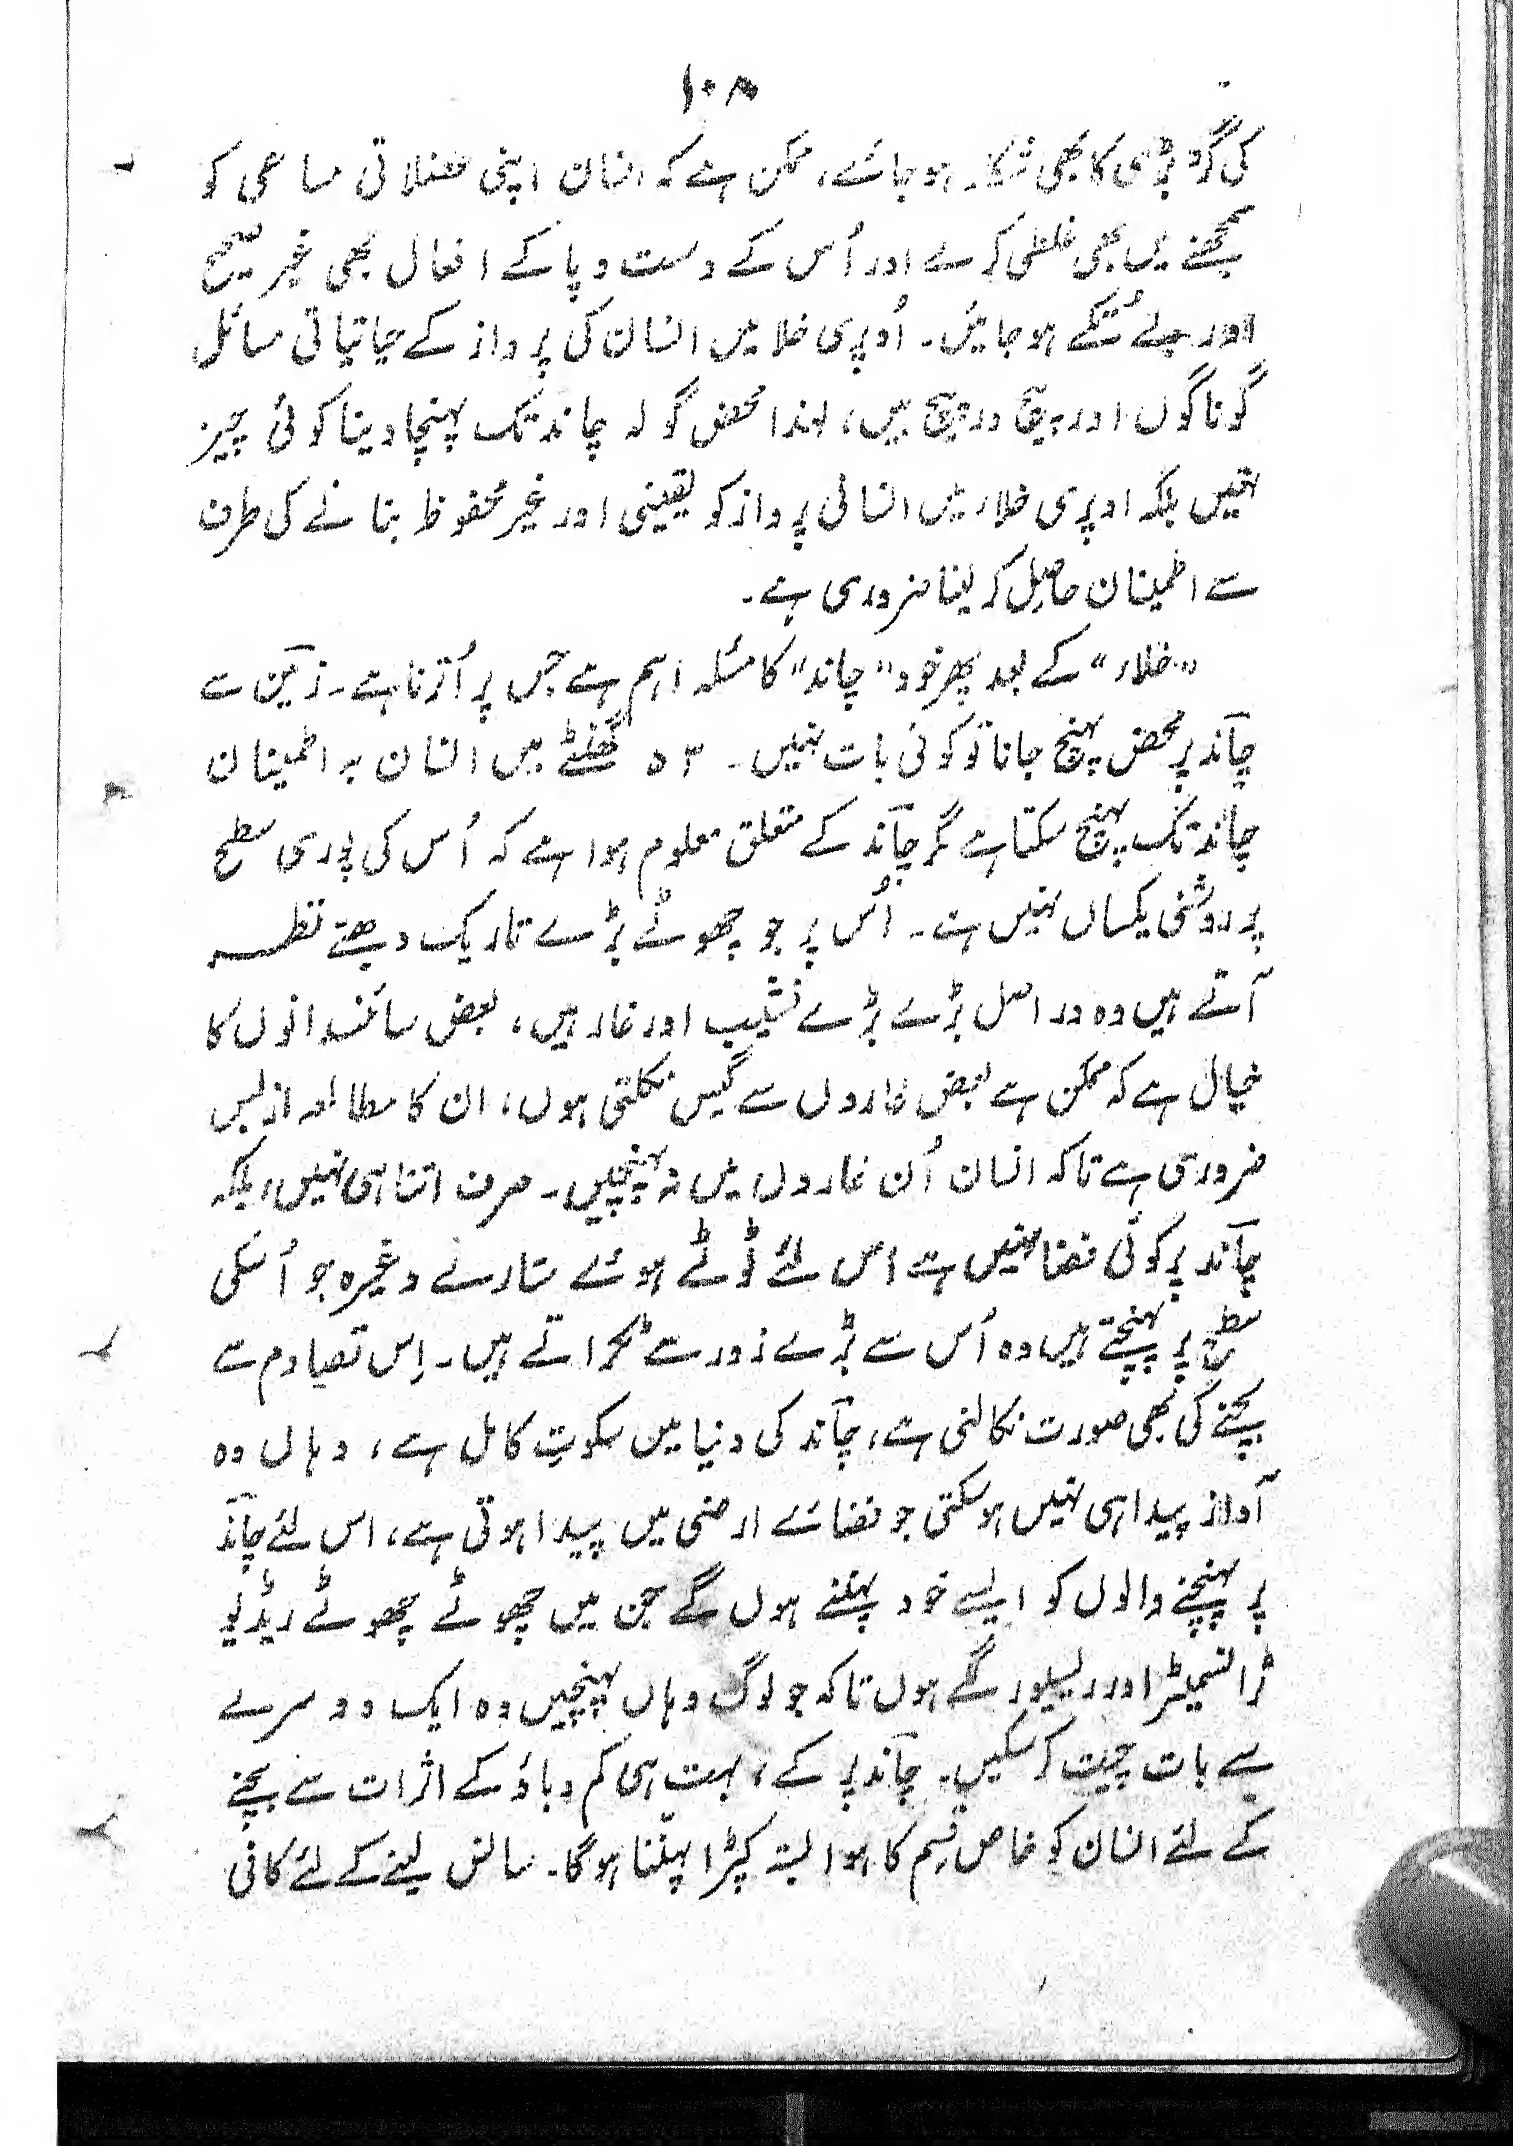 ۱۰۸
کی گڑبڑی کا بھی شکار ہو جائے، ممکن ہے کہ انسان اپنی عضلاتی مساعی کو
سمجھنے میں بھی غلطی کرے اور اُس کے دست و پا کے افعال بھی غیر صحیح
اور بے تُکے ہو جائیں۔ اُوپری خلا میں انسان کی پرواز کے حیاتیاتی مسائل
گوناگوں اور پیچ در پیچ ہیں، لہٰذا محض گولہ چاند تک پہنچا دینا کوئی چیز
نہیں بلکہ اوپری خلاء میں انسانی پرواز کو یقینی اور غیر محفوظ بنانے کی طرف
سے اطمینان حاصِل کر لینا ضروری ہے۔
”خلاء“ کے بعد پھر خود ”چاند“ کا مسئلہ اہم ہے جس پر اُترنا ہے۔ زمین سے
چاند پر محض پہنچ جانا تو کوئی بات نہیں۔ ۵۳ گھنٹے میں انسان بہ اطمینان
چاند تک پہنچ سکتا ہے مگر چاند کے متعلق معلوم ہوا ہے کہ اُس کی پوری سطح
پر روشنی یکساں نہیں ہے۔ اُس پر جو چھوٹے بڑے تاریک دھبے نظر
آتے ہیں وہ دراصل بڑے بڑے نشیب اور غار ہیں، بعض سائنسدانوں کا
خیال ہے کہ ممکن ہے بعض غاروں سے گیس نکلتی ہوں، ان کا مطالعہ ازبس
ضروری ہے تاکہ انسان اُن غاروں میں نہ پہنچیں۔ صرف اتنا ہی نہیں، بلکہ
چاند پر کوئی فضا نہیں ہے اس لئے ٹوٹے ہوئے ستارے وغیرہ جو اُسکی
سطح پر پہنچتے ہیں وہ اُس سے بڑے زور سے ٹکراتے ہیں۔ اِس تصادم سے
بچنے کی بھی صورت نکالنی ہے، چاند کی دنیا میں سکوتِ کامل ہے، وہاں وہ
آواز پیدا ہی نہیں ہو سکتی جو فضائے ارضی میں پیدا ہوتی ہے، اس لئے چاند
پر پہنچنے والوں کو ایسے خود پہننے ہوں گے جن میں چھوٹے چھوٹے ریڈیو
ٹرانسمیٹر اور ریسیور لگے ہوں تاکہ جو لوگ وہاں پہنچیں وہ ایک دوسرے
سے بات چیت کر سکیں۔ چاند پر کے، بہت ہی کم دباؤ کے اثرات سے بچنے
کے لئے انسان کو خاص قسم کا ہوا بستہ کپڑا پہننا ہوگا۔ سانس لینے کے لئے کافی